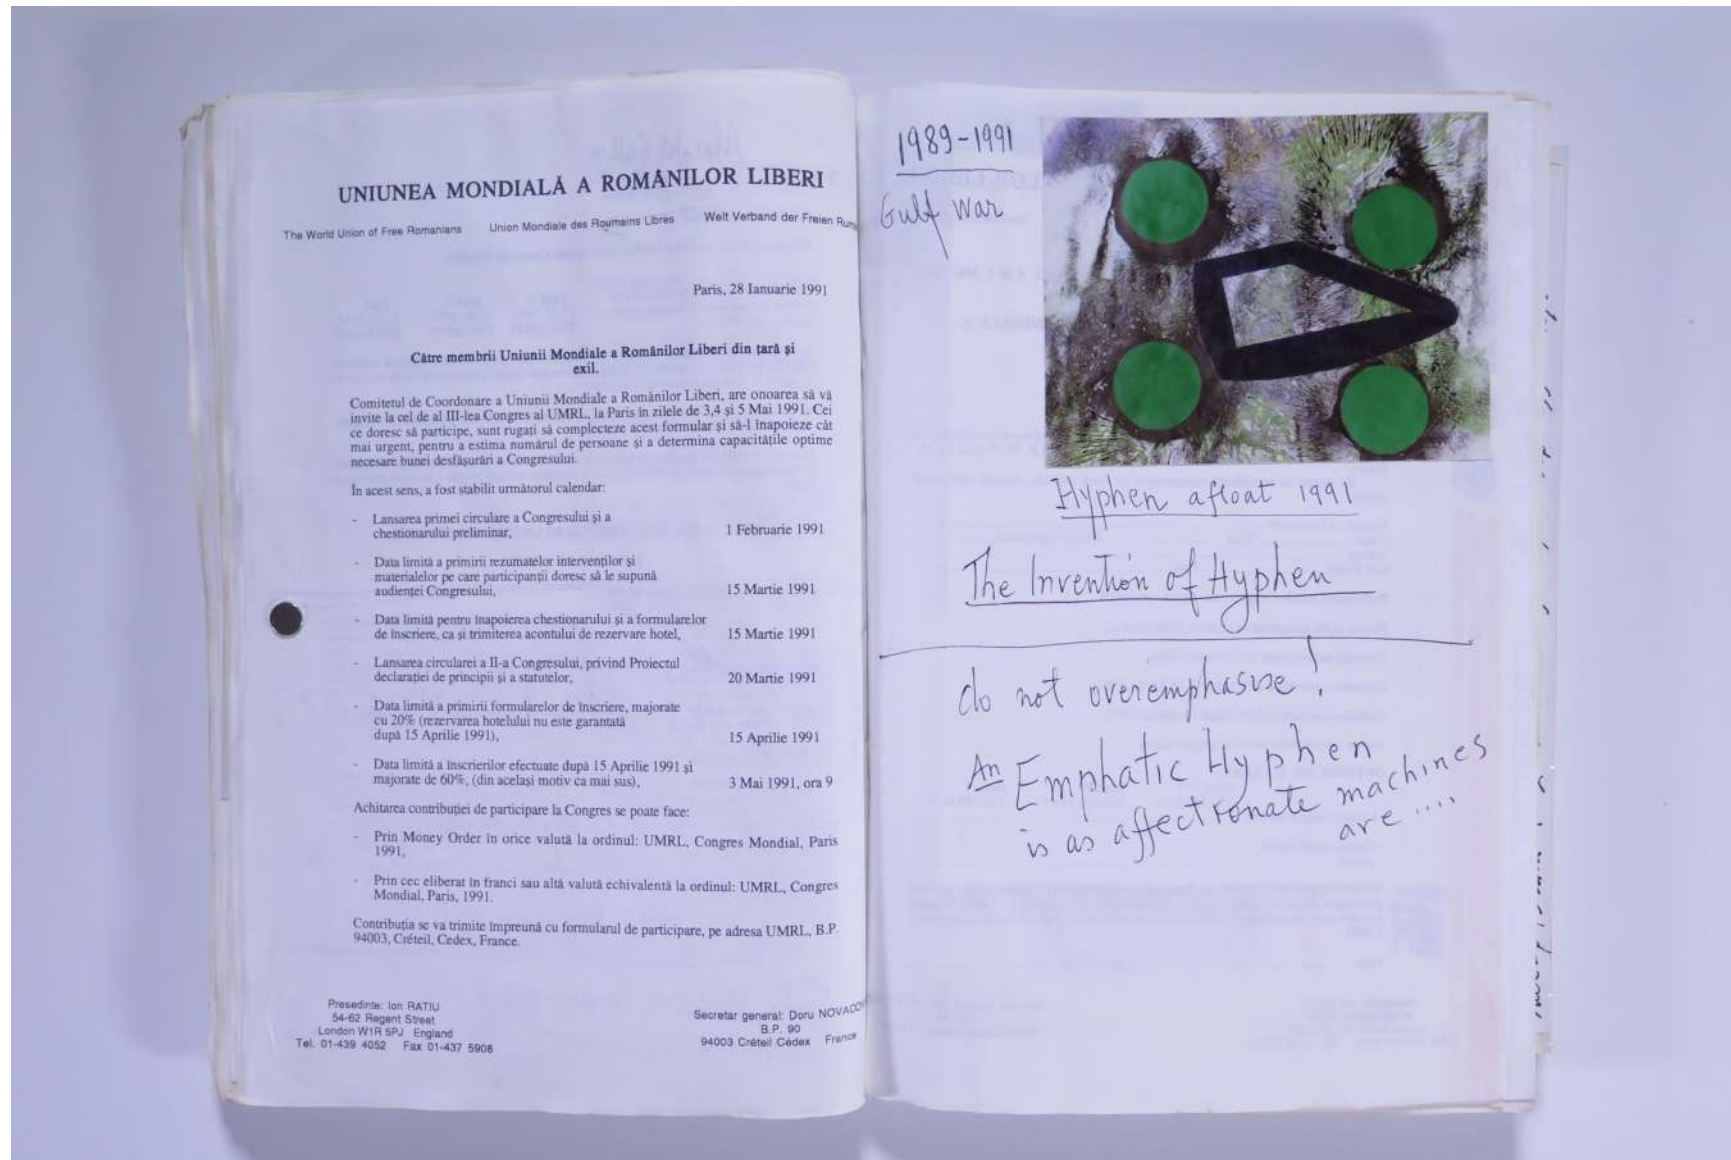 UNIUNEA MONDIALĂ A ROMÂNILOR LIBERI
The World Union of Free Romanians Union Mondiale des Roumains Libres Welt Verband der Freien
Paris, 28 Ianuarie 1991
Către membrii Uniunii Mondiale a Românilor Liberi din țară și
exil.
Comitetul de Coordonare a Uniunii Mondiale a Românilor Liberi, are onoarea să vă
invite la cel de al III-lea Congres al UMRL, la Paris în zilele de 3,4 și 5 Mai 1991. Cei
ce doresc să participe, sunt rugați să complecteze acest formular și să-l înapoieze cât
mai urgent, pentru a estima numărul de persoane și a determina capacitățile optime
necesare bunei desfășurări a Congresului.
În acest sens, a fost stabilit următorul calendar:
- Lansarea primei circulare a Congresului și a
chestionarului preliminar, 1 Februarie 1991
- Data limită a primirii rezumatelor intervenților și
materialelor pe care participanții doresc să le supună
audienței Congresului, 15 Martie 1991
- Data limită pentru înapoierea chestionarului și a formularelor
de înscriere, ca și trimiterea acontului de rezervare hotel, 15 Martie 1991
- Lansarea circularei a II-a Congresului, privind Proiectul
declarației de principii și a statutelor, 20 Martie 1991
- Data limită a primirii formularelor de înscriere, majorate
cu 20% (rezervarea hotelului nu este garantată
după 15 Aprilie 1991), 15 Aprilie 1991
- Data limită a înscrierilor efectuate după 15 Aprilie 1991 și
majorate de 60%, (din același motiv ca mai sus), 3 Mai 1991, ora 9
Achitarea contribuției de participare la Congres se poate face:
- Prin Money Order în orice valută la ordinul: UMRL, Congres Mondial, Paris
1991,
- Prin cec eliberat în franci sau altă valută echivalentă la ordinul: UMRL, Congres
Mondial, Paris, 1991.
Contribuția se va trimite împreună cu formularul de participare, pe adresa UMRL, B.P.
94003, Créteil, Cedex, France.
Presedinte: Ion RATIU
54-62 Regent Street
London W1R 5PJ England
Tel. 01-439 4052 Fax 01-437 5908
Secretar general: Doru
B.P. 90
94003 Créteil Cédex France
1989-1991
Gulf War
Hyphen afloat 1991
The Invention of Hyphen
do not overemphasise!
An Emphatic Hyphen
is as affectionate machines
are ....